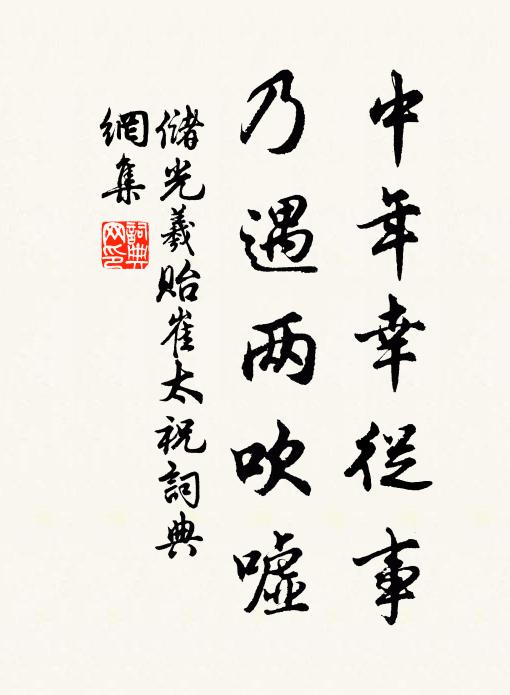 中年幸從事
乃遇两吹嘘
儲光羲貽崔太祝詞典
網集
詞典网印